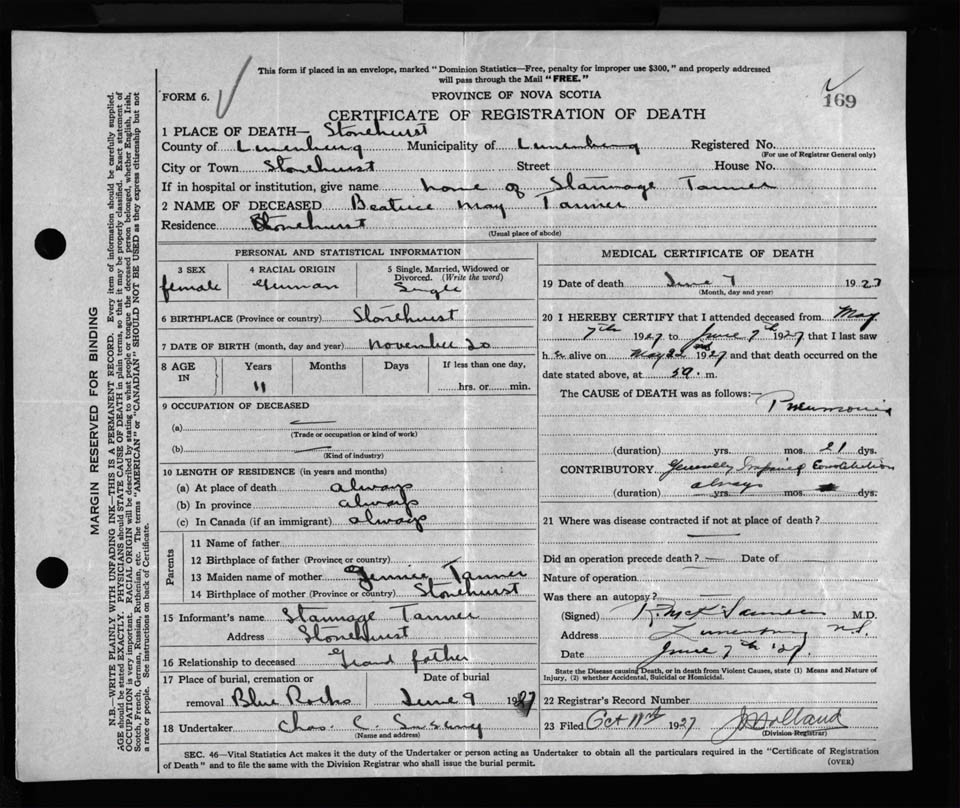 This form if placed in an envelope, marked "Dominion Statistics—Free, penalty for improper use $300," and properly addressed
will pass through the Mail "FREE."
FORM 6.
PROVINCE OF NOVA SCOTIA
169
CERTIFICATE OF REGISTRATION OF DEATH
1 PLACE OF DEATH— Stonehurst
County of Lunenburg Municipality of Lunenburg Registered No.
(For use of Registrar General only)
City or Town Stonehurst Street House No.
If in hospital or institution, give name home of Stannage Tanner
2 NAME OF DECEASED Beatrice May Tanner
Residence Stonehurst
(Usual place of abode)
PERSONAL AND STATISTICAL INFORMATION
3 SEX 4 RACIAL ORIGIN 5 Single, Married, Widowed or
Divorced. (Write the word)
female German Single
6 BIRTHPLACE (Province or country) Stonehurst
7 DATE OF BIRTH (month, day and year) November 20
8 AGE IN Years Months Days If less than one day,
11 hrs. or min.
9 OCCUPATION OF DECEASED
(a) —
(Trade or occupation or kind of work)
(b) —
(Kind of industry)
10 LENGTH OF RESIDENCE (in years and months)
(a) At place of death always
(b) In province always
(c) In Canada (if an immigrant) always
Parents
11 Name of father
12 Birthplace of father (Province or country)
13 Maiden name of mother Jennie Tanner
14 Birthplace of mother (Province or country) Stonehurst
15 Informant's name Stannage Tanner
Address Stonehurst
16 Relationship to deceased Grand father
17 Place of burial, cremation or Date of burial
removal Blue Rocks June 9 1927
18 Undertaker Chas. C.
(Name and address)
MEDICAL CERTIFICATE OF DEATH
19 Date of death June 7 1927
(Month, day and year)
20 I HEREBY CERTIFY that I attended deceased from May
7th 1927 to June 7th 1927 that I last saw
h er alive on May 22nd 1927 and that death occurred on the
date stated above, at 5 a. m.
The CAUSE of DEATH was as follows:— Pneumonia
(duration) yrs. mos. 21 dys.
CONTRIBUTORY Generally Impaired Constitution
always
(duration) yrs. mos. dys.
21 Where was disease contracted if not at place of death?
Did an operation precede death? — Date of
Nature of operation
Was there an autopsy?
(Signed) M.D.
Address Lunenburg N.S.
Date June 7th '27
State the Disease causing Death, or in death from Violent Causes, state (1) Means and Nature of
Injury, (2) whether Accidental, Suicidal or Homicidal.
22 Registrar's Record Number
23 Filed Oct 1927 Holland
(Division Registrar)
SEC. 46—Vital Statistics Act makes it the duty of the Undertaker or person acting as Undertaker to obtain all the particulars required in the "Certificate of Registration
of Death" and to file the same with the Division Registrar who shall issue the burial permit.
(OVER)
MARGIN RESERVED FOR BINDING
N.B.—WRITE PLAINLY WITH UNFADING INK—THIS IS A PERMANENT RECORD. Every item of information should be carefully supplied.
AGE should be stated EXACTLY. PHYSICIANS should STATE CAUSE OF DEATH in plain terms, so that it may be properly classified. Exact statement of
OCCUPATION is very important. RACIAL ORIGIN will be described by stating to what people or tongue the deceased person belonged, whether English, Irish,
Scotch, French, German, Russian, Ruthenian, etc. The terms "AMERICAN" or "CANADIAN" SHOULD NOT BE USED as they express citizenship but not
a race or people. See instructions on back of Certificate.